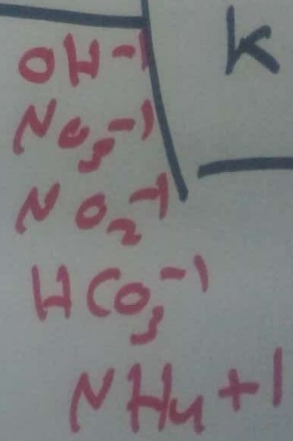 OH-1
K
NO₃-1
NO₂-1
HCO₃-1
NH₄+1